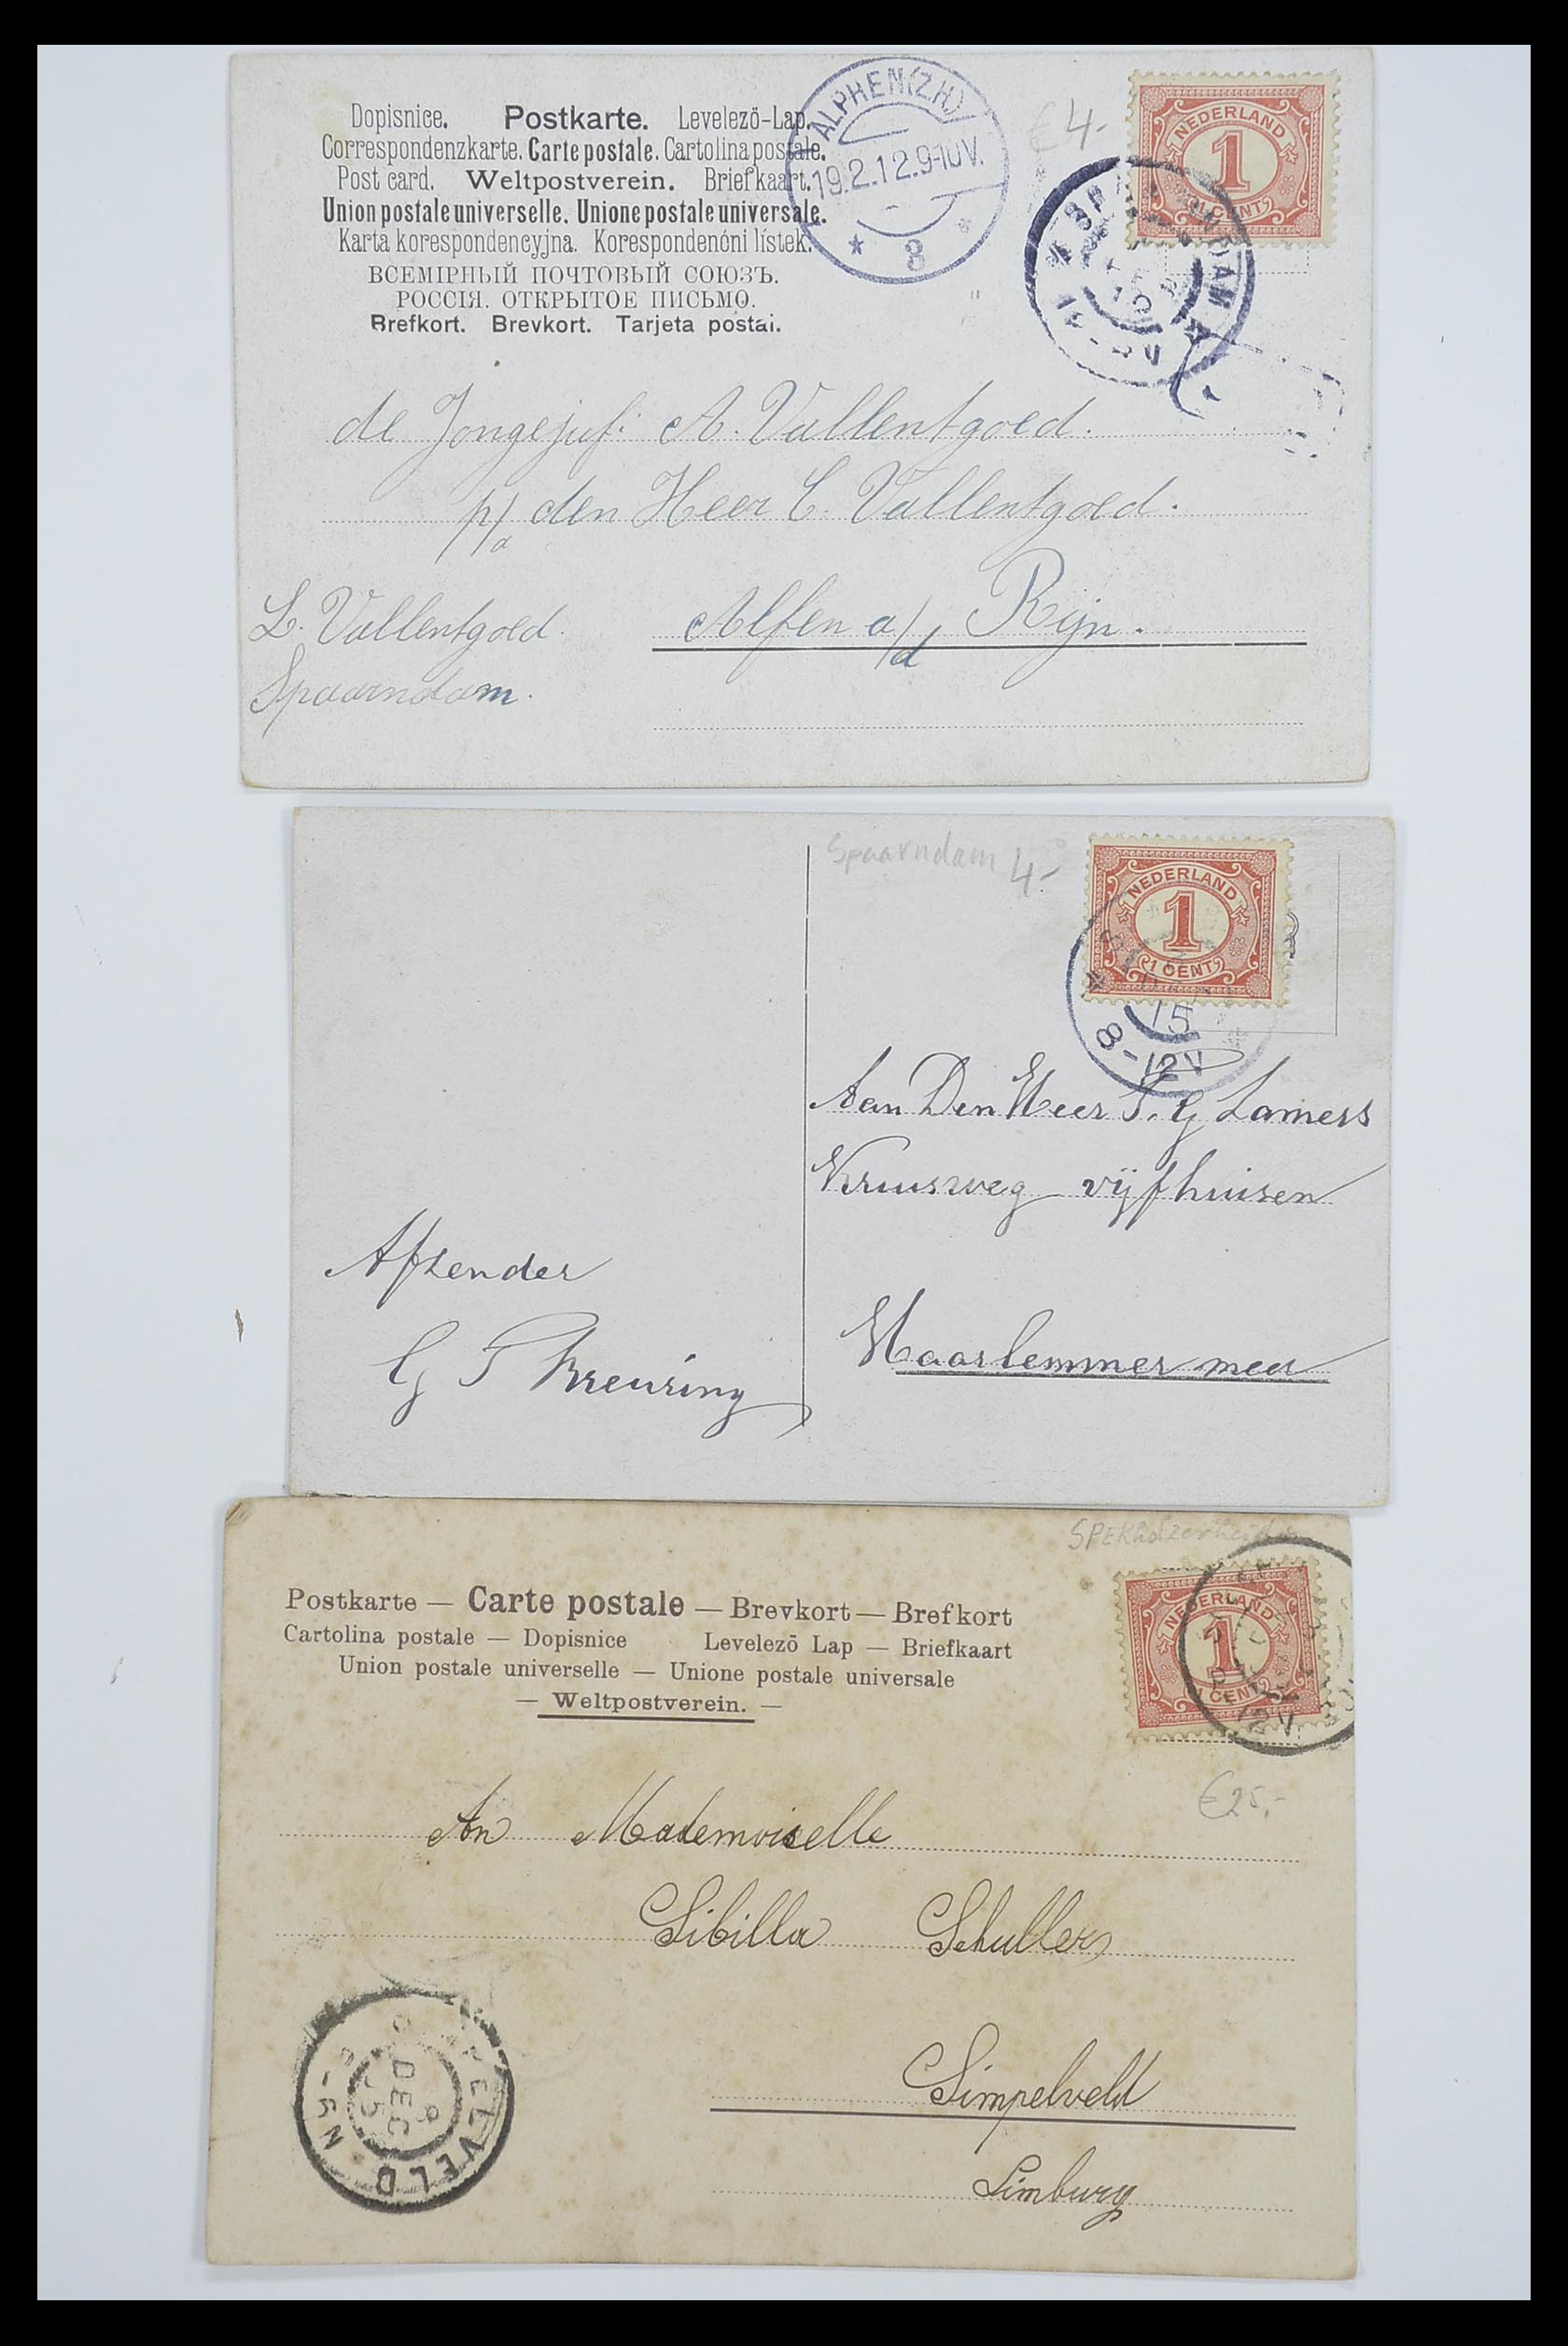 Dopisnice. Postkarte. Levelező-Lap.
Correspondenzkarte. Carte postale. Cartolina postale.
Post card. Weltpostverein. Briefkaart.
Union postale universelle. Unione postale universale.
Karta korespondencyjna. Korespondenóni lístek.
ВСЕМІРНЫЙ ПОЧТОВЫЙ СОЮЗЪ.
РОССІЯ. ОТКРЫТОЕ ПИСЬМО.
Brefkort. Brevkort. Tarjeta postai.
ALPHEN (Z.H.)
19.2.12.9-10V.
* 3 *
€ 4,-
NEDERLAND
1
1 CENT
de Jongejuf: A. Vallentgoed.
p/a den Heer C. Vallentgoed.
Alfen a/d Rijn.
L. Vallentgoed.
Spaarndam.
Spaarndam 4,-
NEDERLAND
1
1 CENT
15
8-12V
Aan Den Heer T. G Lamers
Kruisweg vijfhuisen
Haarlemmer meer
Afzender
G T Kreuring
SPEKholzerheide
Postkarte — Carte postale — Brevkort — Brefkort
Cartolina postale — Dopisnice Levelező Lap — Briefkaart
Union postale universelle — Unione postale universale
— Weltpostverein. —
NEDERLAND
1
1 CENT
€25,-
An Mademoiselle
Sibilla Schullers
Simpelveld
Limburg
DEC